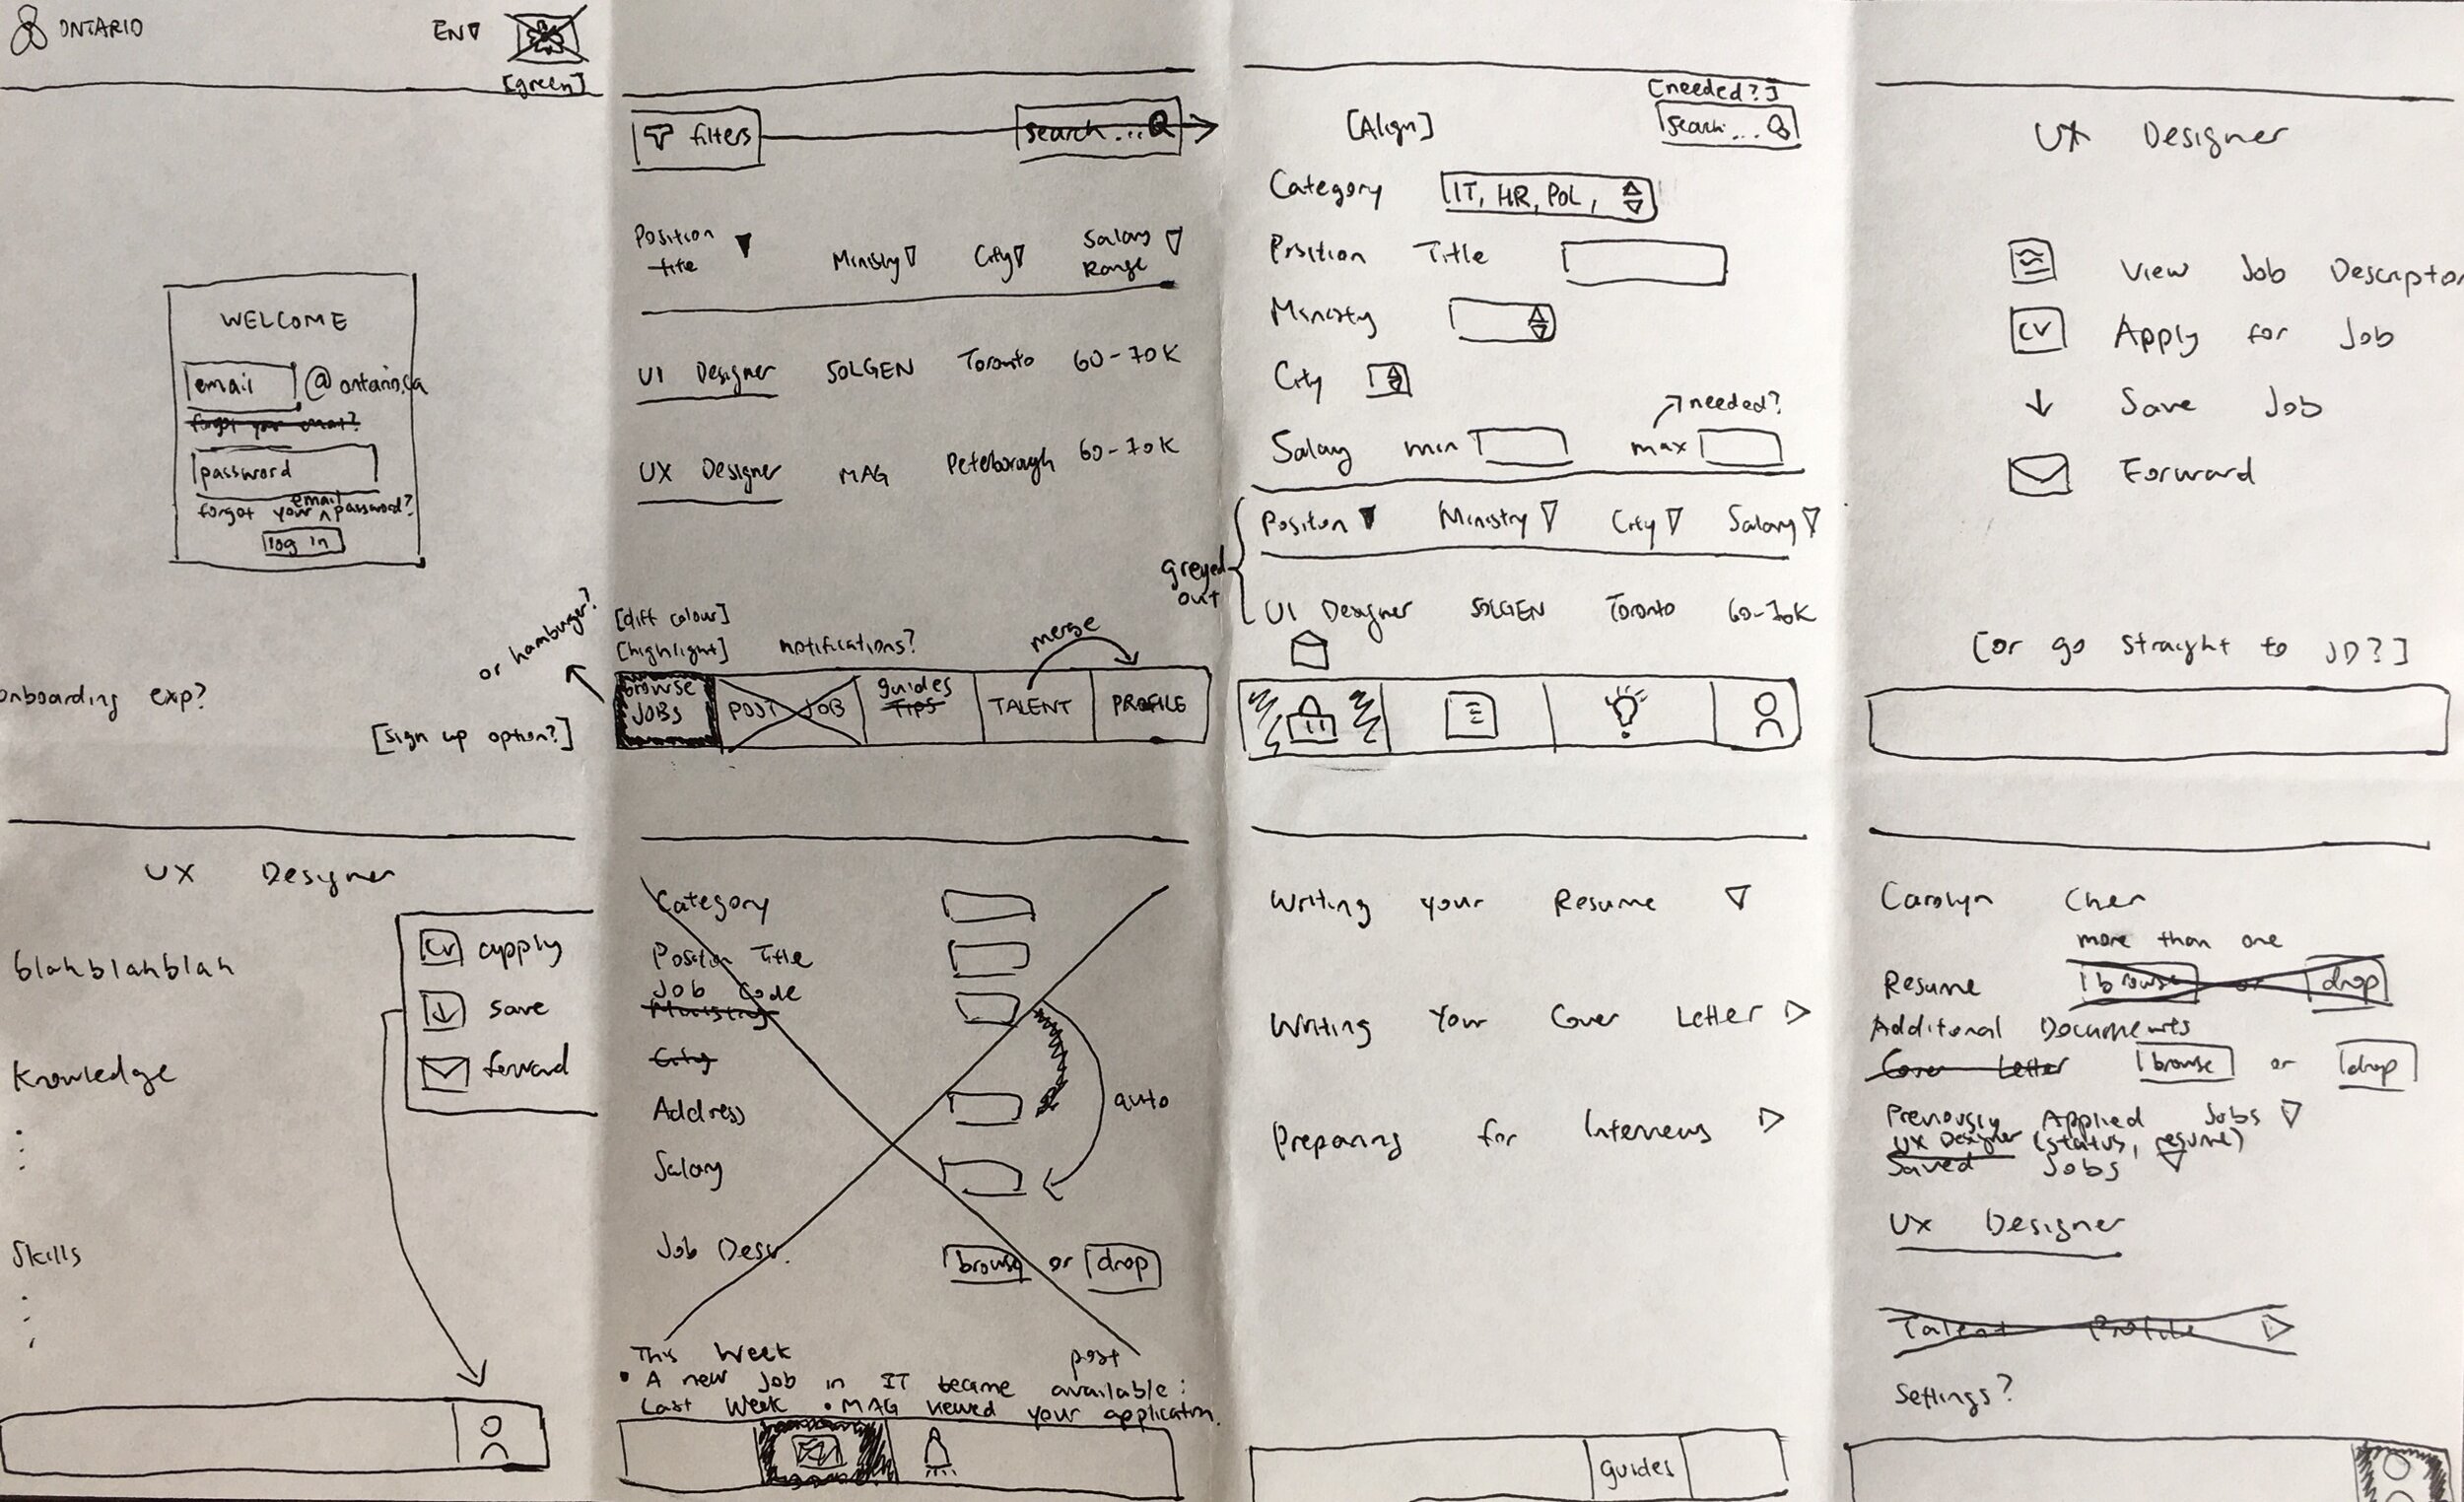 ONTARIO
EN
[green]
WELCOME
email @ontario.ca
forgot your email?
password
email
forgot your ^ password?
log in
or hamburger?
onboarding exp?
[sign up option?]
filters
search...
Position
title
Ministry
City
Salary
Range
UI Designer SOLGEN Toronto 60-70K
UX Designer MAG Peterborough 60-70K
[diff colour]
[highlight]
notifications?
merge
browse
JOBS
POST JOB
guides
TIPS
TALENT
PROFILE
[needed?]
[Align]
search...
Category IT, HR, POL,
Position Title
Ministry
City
needed?
Salary min max
greyed
out
Position Ministry City Salary
UI Designer SOLGEN Toronto 60-70K
UX Designer
View Job Descripton
CV Apply for Job
Save Job
Forward
[or go straight to JD?]
UX Designer
blahblahblah
CV apply
save
forward
Knowledge
Skills
Category
Position Title
Job Code
Ministry
City
Address
auto
Salary
Job Desc. browse or drop
This Week
post
• A new job in IT became available:
Last Week • MAG viewed your application.
Writing your Resume
Writing Your Cover Letter
Preparing for Interviews
guides
Carolyn Chen
more than one
Resume browse or drop
Additional Documents
Cover Letter browse or drop
Previously Applied Jobs
UX Designer (status, resume)
Saved Jobs
UX Designer
Talent Profile
Settings?